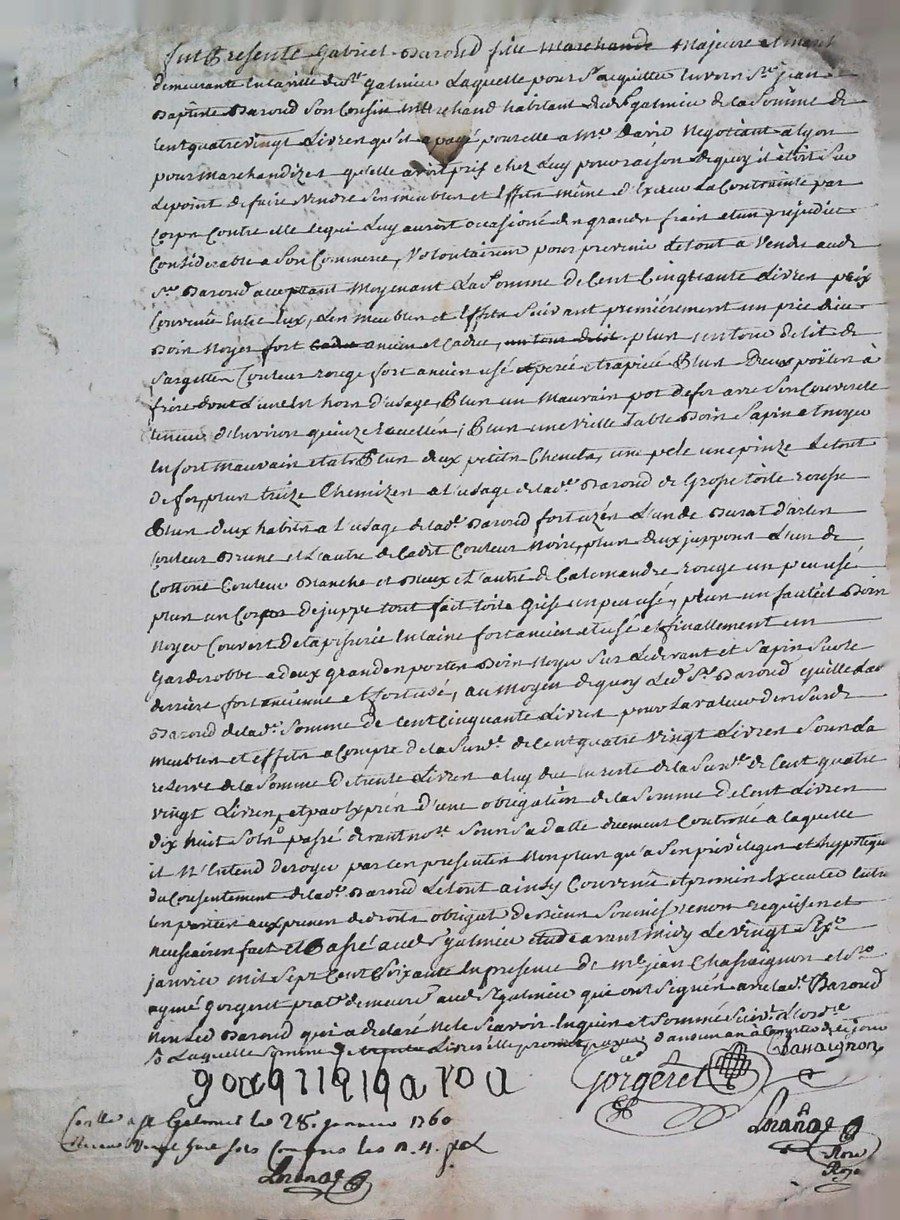 fut Presente Gabriel Baroud fille Marchande Majeure et
demeurante en la ville de St galmier Laquelle pour S'acquitter Envers Sr jean
Baptiste Baroud Son Cousin Marchand habitant dud St galmier de la Somme de
Cent quatre vingt Livres qu'il a payé pour elle a Mr David Negotiant a Lyon
pour Marchandizes qu'elle avoit pris chez Luy pour raison dequoy il étoit Sur
Le point de faire Vendre Ses meubles et Effets même d'Exercer La Contrainte par
Corps Contre elle Ce qui Luy auroit occasioné de grands frais et un prejudice
Considerable a Son Commerce, Volontairement pour prevenir Le tout a Vendu aud
Sr Baroud acceptant Moyenant La Somme de Cent Cinquante Livres prix
Convenu Entre Eux, Les Meubles et Effets Suivant premierement un
Bois Noyer fort ancien et Cadre, un tour de lit plus un tour de lit de
Sargette Couleur rouge fort ancien usé et rapiecé Plus Deux poëles à
frire dont L'une Est hors d'usage, Plus un Mauvais pot de fer avec Son Couvercle
teneur d'Environ quinze Ecuelles, Plus une Vielle table Bois Sapin et noyer
En fort Mauvais etat Plus deux petits Chenets, une pele une pinze Le tout
de fer, plus treize Chemizes a L'usage de lad. Baroud de Grosse toile rousse
Plus deux habits a L'usage de lad. Baroud fort uzés L'un de Burat d'arles
Couleur Brune et L'autre de Cadit Couleur Noire, plus deux juppons L'un de
Cottone Couleur Blanche et Bleux et L'autre de Calemandre rouge un peu usé
plus un Corps de juppe tout fait toile Grise un peu usé, plus un fauteil Bois
Noyer Couvert de tapisserie En laine fort ancien et usé et finallement un
Garderobbe a deux grandes portes Bois Noyer Sur Le devant et Sapin Sur le
derriere fort ancienne et fort usé, au moyen de quoy Led Sr Baroud quitte Lad
Baroud de lad. Somme de Cent Cinquante Livres pour La valeur des Susd
meubles et effets a Compte de la Susd. de Cent quatre Vingt Livres Sous La
reserve de la Somme de trente Livres a luy due En reste de la Susd. de Cent quatre
vingt Livres, et par Exprés d'une obligation de la Somme de Cent Livres
dix huit Sols passé devant nore Sous Sa datte deument Controllé a laquelle
il N'Entend deroger par Ces presentes Non plus qu'a Ses privileges et hypoteque
du Consentement de lad. Baroud Le tout ainsy Convenu et promis Executer Entre
Les parties aux peines de droits obligat de biens Soumis renon requises et
necessaires fait et Passé aud St galmier etude avant midy Le vingt Six
janvier mil Sept Cent Soixante En presence de Me jean Chassaignon et Sr
aymé Gorgeret prat. demeurs aud St galmier qui ont Signés avec lad. Baroud
Non Led Baroud qui a declaré Ne le Scavoir Enquis et Sommé
Laquelle Somme de trente Livres elle promet payer dans un an à Compter de ce jour
Gorgeret
Chassaignon
Lorange
Conlle a St Galmier le 28. janvier 1760
Receu Vingt huit sols Compris les n. 4.
Lorange